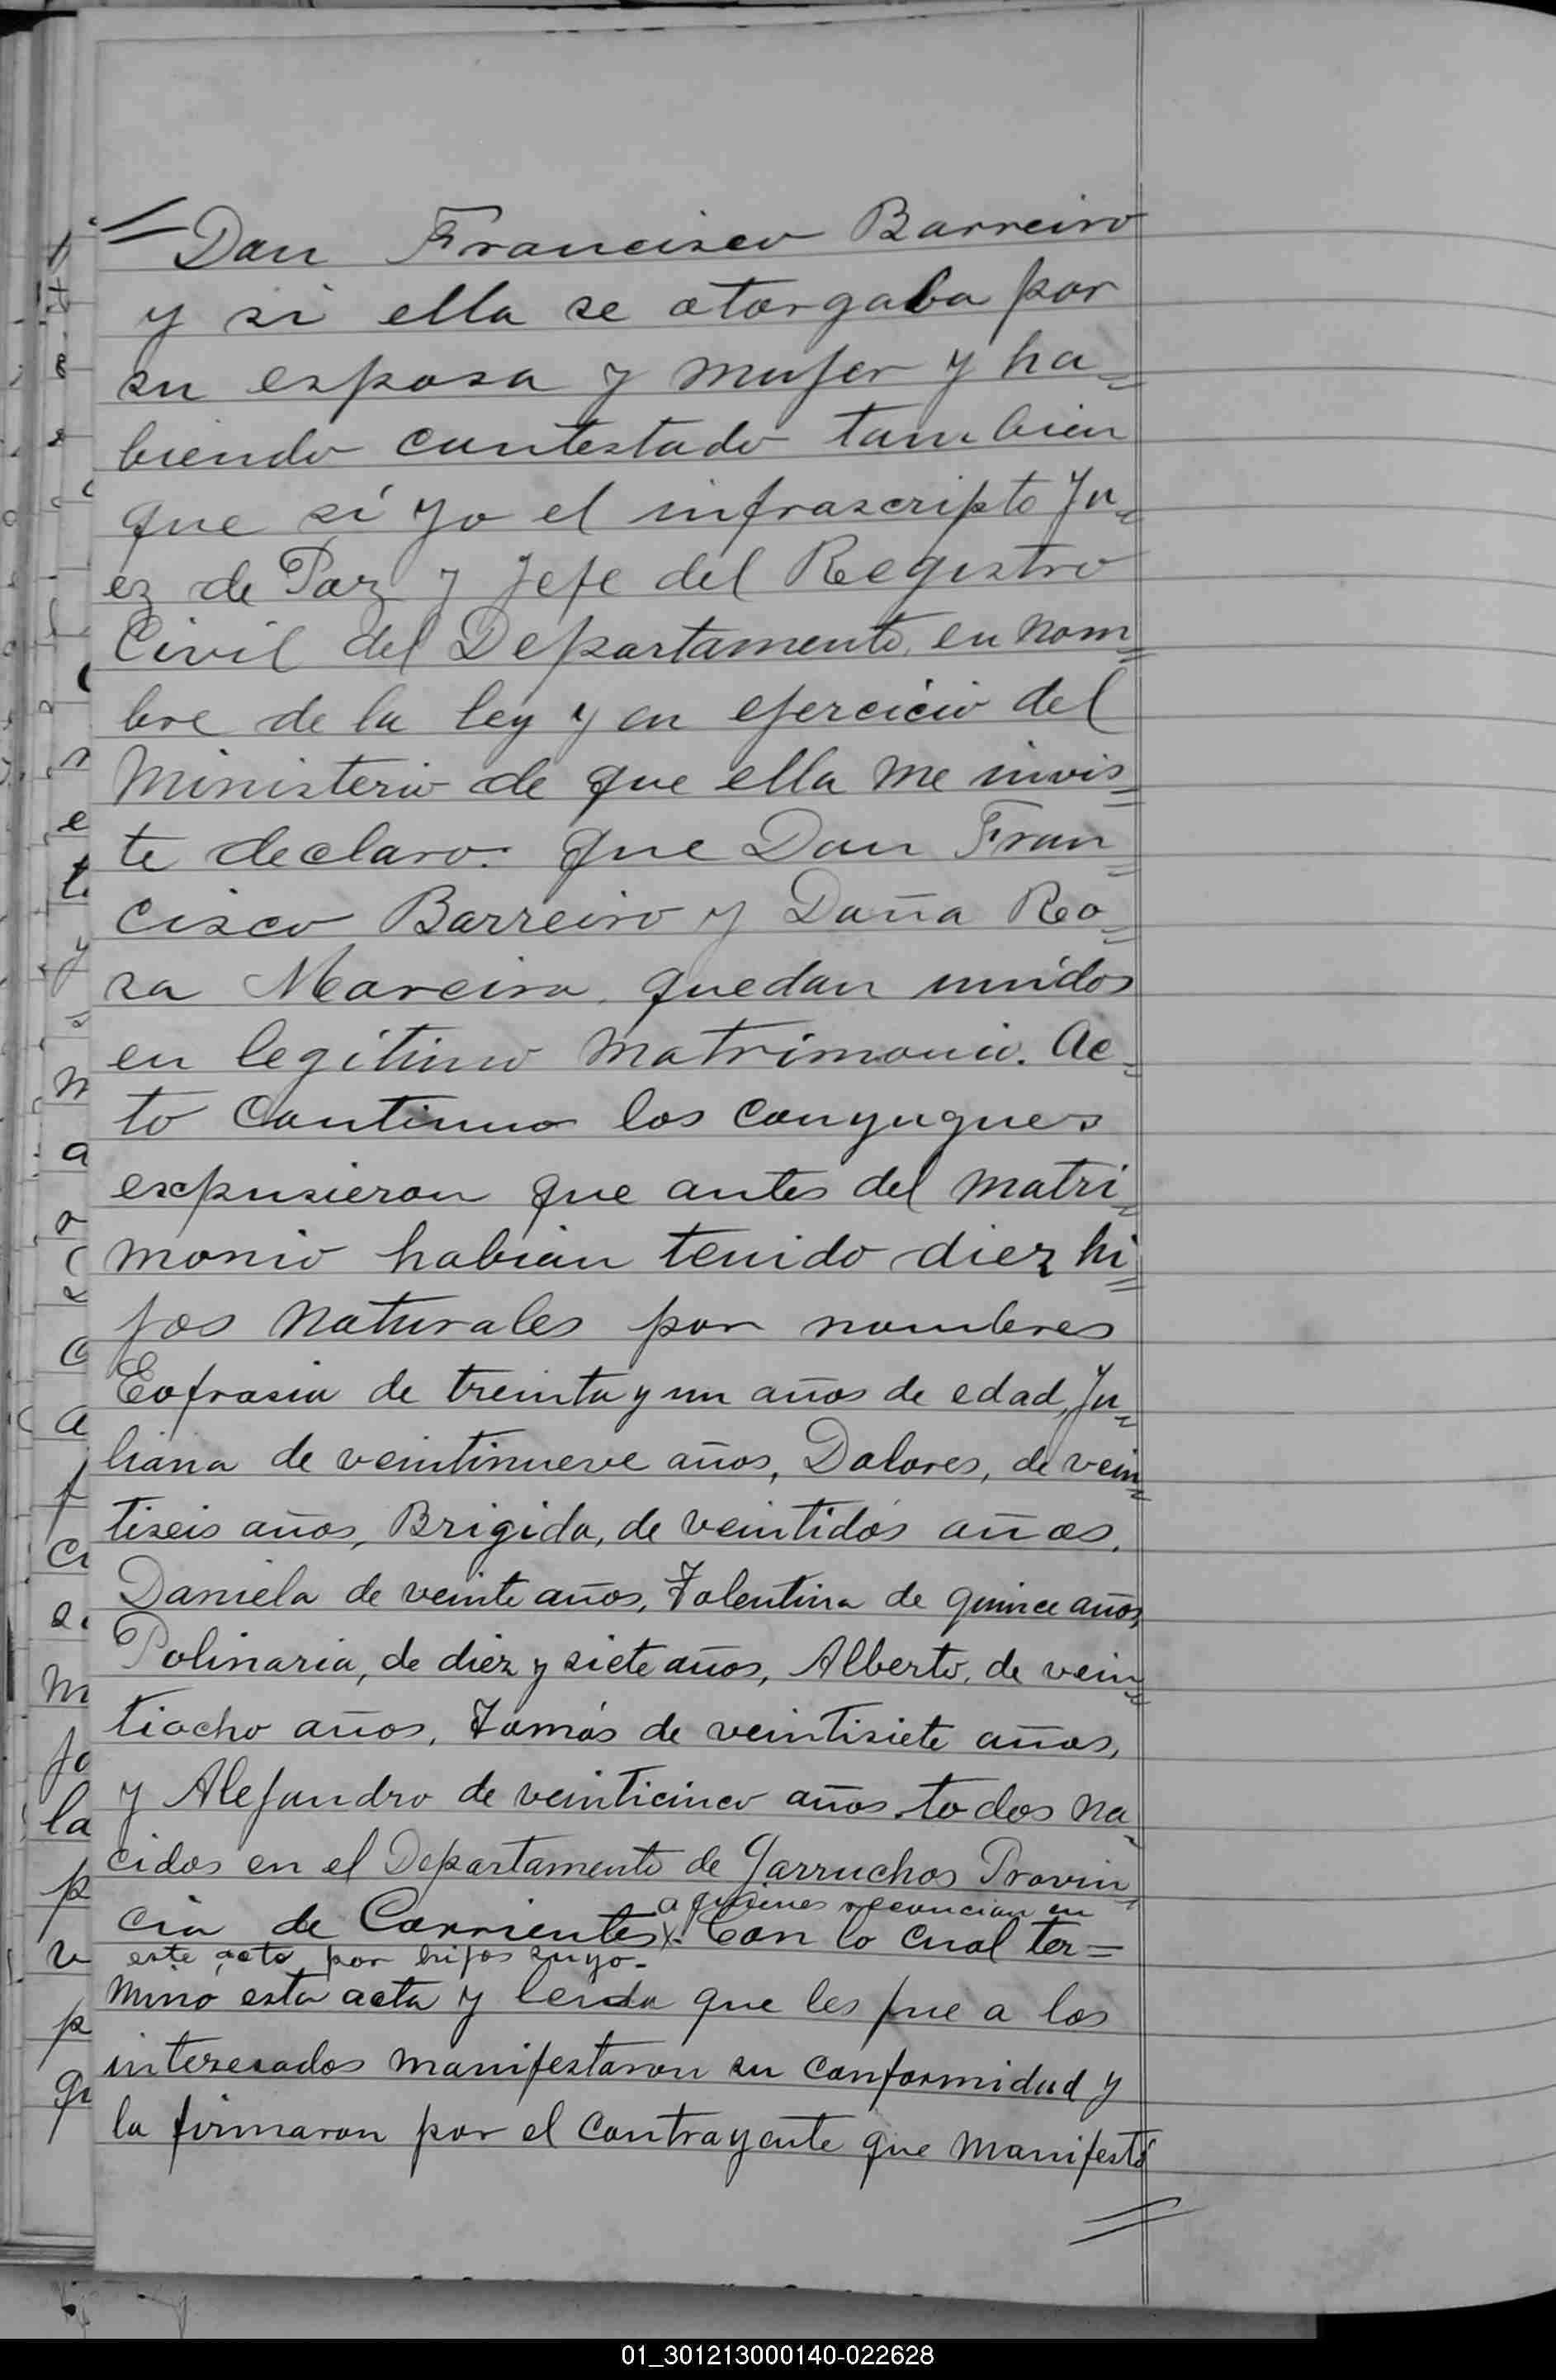 = Don Francisco Barreiro
y si ella se otorgaba por
su esposa y mujer y ha=
biendo contestado tambien
que sí yo el infrascripto Ju=
ez de Paz y Jefe del Registro
Civil del Departamento, en nom=
bre de la ley y en ejercicio del
Ministerio de que ella me invis=
te declaro: que Don Fran=
cisco Barreiro y Doña Ro=
sa Moreira, quedan unidos
en legítimo matrimonio. Ac=
to continuo los conyugues
expusieron que antes del matri=
monio habian tenido diez hi=
jos naturales por nombres
Eofrasia de treinta y un años de edad, Ju=
liana de veintinueve años, Dolores, de vein=
tiseis años, Brigida, de veintidós años,
Daniela de veinte años, Tolentina de quince años,
Polinaria, de diez y siete años, Alberto, de vein=
tiocho años, Tomás de veintisiete años,
y Alejandro de veinticinco años todos na=
cidos en el Departamento de Garruchos Provin=
a quienes reconocian en
cia de Corrientes x. Con lo cual ter=
este acto por hijos suyo-
minó esta acta y leida que les fue a los
interesados manifestaron su conformidad y
la firmaron por el contrayente que manifestó
=
01_301213000140-022628